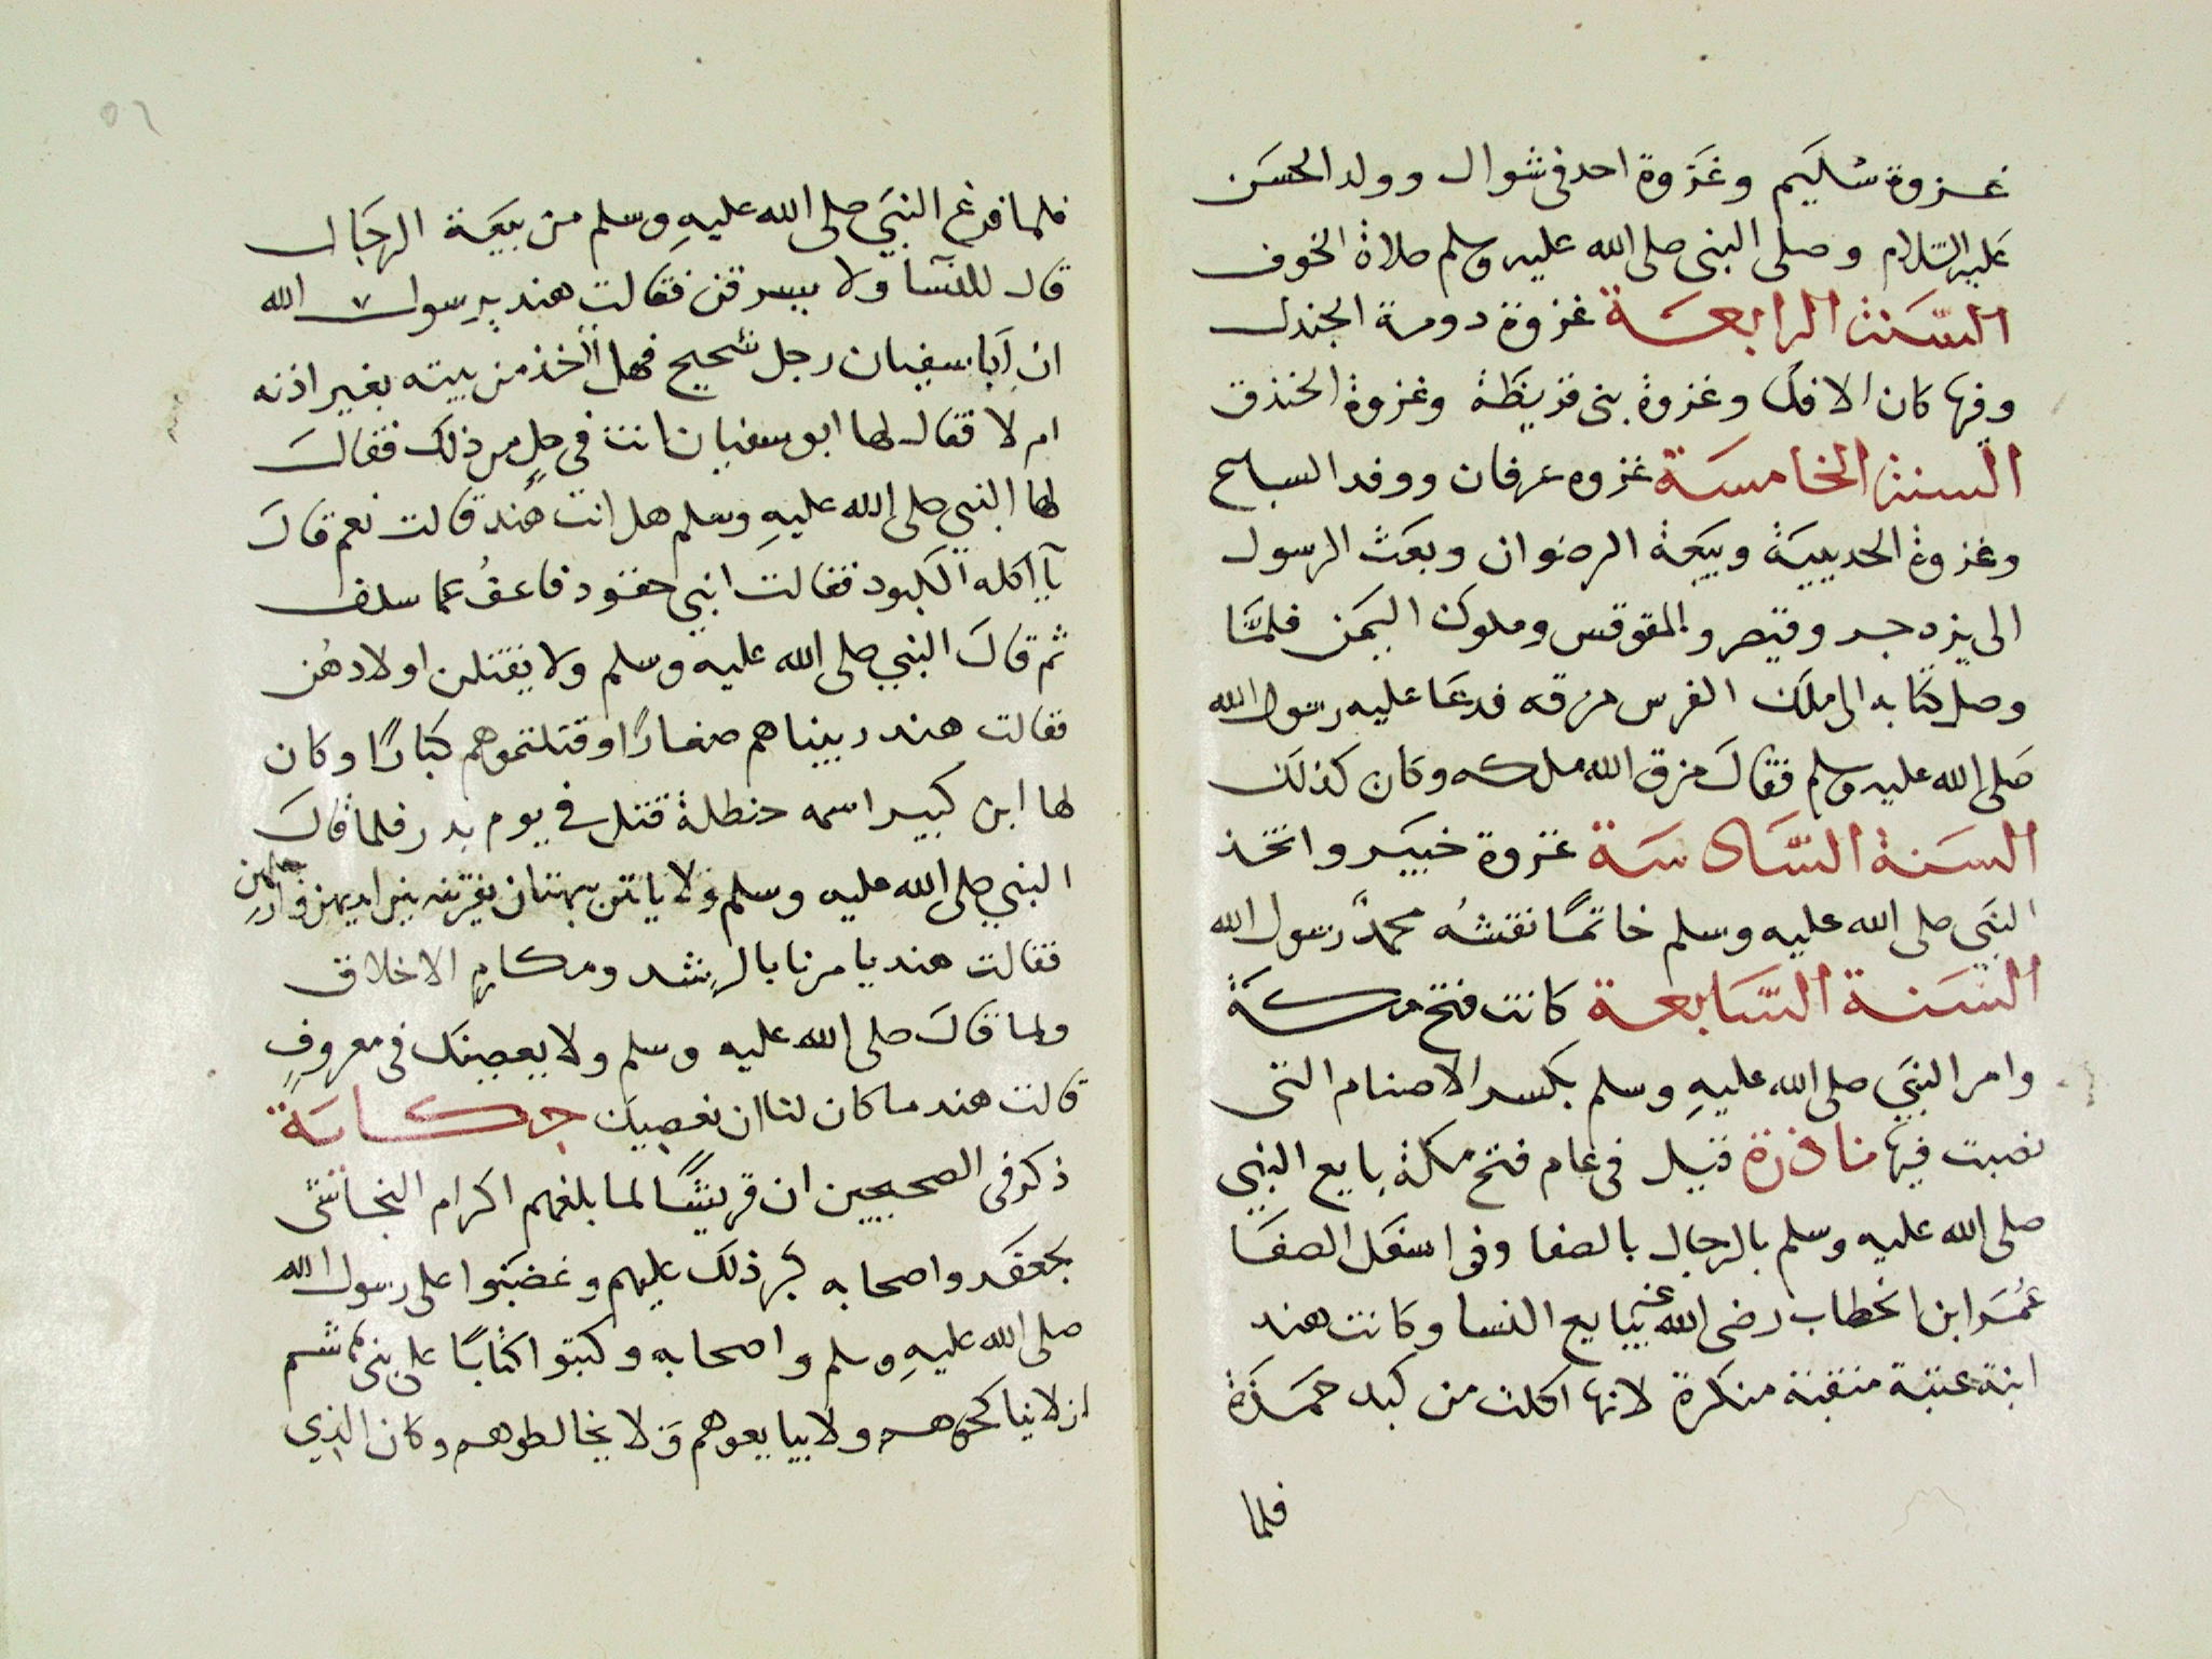 غزوة سُليم وغزوة احد فى شوال وولد الحسن
عليه السّلام وصلى النبى صلى الله عليه وسلم صلاة الخوف
السّنة الرابعة غزوة دومة الجندل
وفيها كان الافك وغزوة بنى قريظة وغزوة الخندق
السنة الخامسة غزوه عرفان ووفد السباع
وغزوة الحديبية وبيعة الرضوان وبعث الرسول
الى يزدجرد وقيصر والمقوقس وملوك اليمن فلمّا
وصل كتابه الى ملك الفرس مزقه فدعا عليه رسول الله
صلى الله عليه وسلم فقال مزق الله ملكه وكان كذلك
السنة السّادسة غزوة خيبر واتخذ
النبي صلى الله عليه وسلم خاتمًا نقشهُ محمدٌ رسول الله
السنة السّابعة كانت فتح مكة
وامر النبي صلى الله عليهِ وسلم بكسر الاصنام التى
نصبت فيها نادرة قيل فى عام فتح مكة بايع النبي
صلى الله عليه وسلم بالرجال بالصفا وفى اسفل الصفا
عُمر ابن الخطاب رضى الله عنه يبايع النسا وكانت هند
ابنة عتبة منقبة منكرة لانها اكلت من كبد حمزة
فلما
٥٦
فلما فرغ النبي صلى الله عليهِ وسلم من بيعة الرجال
قال للنسآ ولا يسرقن فقالت هند يرسول الله
ان ابا سفيان رجل شحيح فهل أاخذ من بيته بغير اذنه
ام لا فقال لها ابو سفيان انت في حلٍ من ذلك فقال
لها النبي صلى الله عليهِ وسلم هل انت هند قالت نعم قال
يآ اكله الكبود فقالت انني حقود فاعفُ عما سلف
ثم قال النبي صلى الله عليه وسلم ولا يقتلن اولادهُن
فقالت هند ربيناهم صغارًا وقتلتموهم كبارًا وكان
لها ابن كبير اسمه حنظلة قتل في يوم بدر فلما قال
النبي صلى الله عليه وسلم ولا ياتن ببهتان يفترنه بين ايديهن وارجلهن
فقالت هند يا مرنا بالرِشد ومكارم الاخلاق
ولما قال صلى الله عليه وسلم ولا يعصينك فى معروفٍ
قالت هند ما كان لنا ان نعصيك حكاية
ذكر فى الصحيحين ان قريشًا لما بلغهم اكرام النجاشى
بجعفر واصحابه كبر ذلك عليهم وغضبوا على رسول الله
صلى الله عليهِ وسلم واصحابه وكتبوا كتابًا على بنى هاشم
ان لا يناكحوهم ولا يبايعوهم ولا يخالطوهم وكان الذي